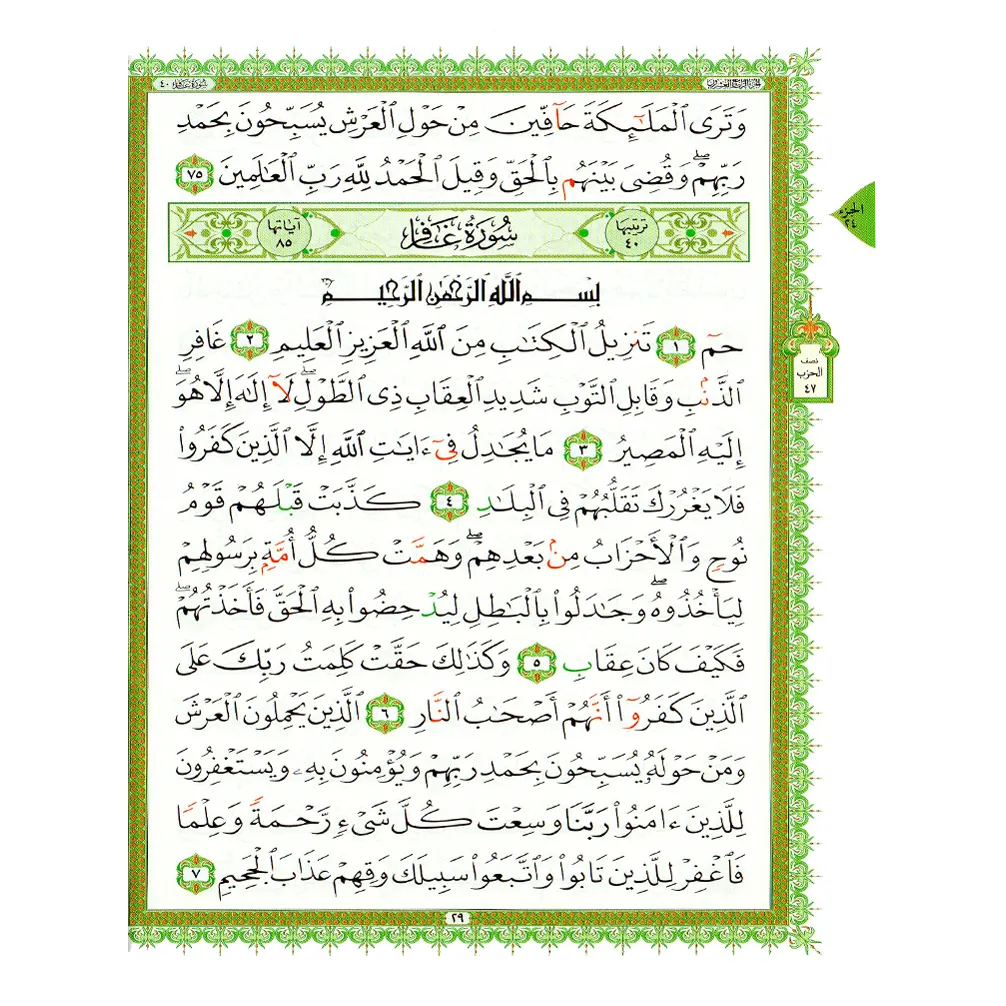 الجزء الرابع والعشرون
سورة غافر ٤٠
وَتَرَى ٱلْمَلَٰٓئِكَةَ حَآفِّينَ مِنْ حَوْلِ ٱلْعَرْشِ يُسَبِّحُونَ بِحَمْدِ
رَبِّهِمْ ۖ وَقُضِىَ بَيْنَهُم بِٱلْحَقِّ وَقِيلَ ٱلْحَمْدُ لِلَّهِ رَبِّ ٱلْعَٰلَمِينَ ٧٥
ترتيبها ٤٠
سُورَةُ غَافِرٍ
آياتها ٨٥
الجزء ٢٤
بِسْمِ ٱللَّهِ ٱلرَّحْمَٰنِ ٱلرَّحِيمِ
حمٓ ١ تَنزِيلُ ٱلْكِتَٰبِ مِنَ ٱللَّهِ ٱلْعَزِيزِ ٱلْعَلِيمِ ٢ غَافِرِ
ٱلذَّنۢبِ وَقَابِلِ ٱلتَّوْبِ شَدِيدِ ٱلْعِقَابِ ذِى ٱلطَّوْلِ ۖ لَآ إِلَٰهَ إِلَّا هُوَ ۖ
نصف
الحزب
٤٧
إِلَيْهِ ٱلْمَصِيرُ ٣ مَا يُجَٰدِلُ فِىٓ ءَايَٰتِ ٱللَّهِ إِلَّا ٱلَّذِينَ كَفَرُوا۟
فَلَا يَغْرُرْكَ تَقَلُّبُهُمْ فِى ٱلْبِلَٰدِ ٤ كَذَّبَتْ قَبْلَهُمْ قَوْمُ
نُوحٍ وَٱلْأَحْزَابُ مِنۢ بَعْدِهِمْ ۖ وَهَمَّتْ كُلُّ أُمَّةٍۭ بِرَسُولِهِمْ
لِيَأْخُذُوهُ ۖ وَجَٰدَلُوا۟ بِٱلْبَٰطِلِ لِيُدْحِضُوا۟ بِهِ ٱلْحَقَّ فَأَخَذْتُهُمْ ۖ
فَكَيْفَ كَانَ عِقَابِ ٥ وَكَذَٰلِكَ حَقَّتْ كَلِمَتُ رَبِّكَ عَلَى
ٱلَّذِينَ كَفَرُوٓا۟ أَنَّهُمْ أَصْحَٰبُ ٱلنَّارِ ٦ ٱلَّذِينَ يَحْمِلُونَ ٱلْعَرْشَ
وَمَنْ حَوْلَهُۥ يُسَبِّحُونَ بِحَمْدِ رَبِّهِمْ وَيُؤْمِنُونَ بِهِۦ وَيَسْتَغْفِرُونَ
لِلَّذِينَ ءَامَنُوا۟ رَبَّنَا وَسِعْتَ كُلَّ شَىْءٍ رَّحْمَةً وَعِلْمًا
فَٱغْفِرْ لِلَّذِينَ تَابُوا۟ وَٱتَّبَعُوا۟ سَبِيلَكَ وَقِهِمْ عَذَابَ ٱلْجَحِيمِ ٧
٢٩